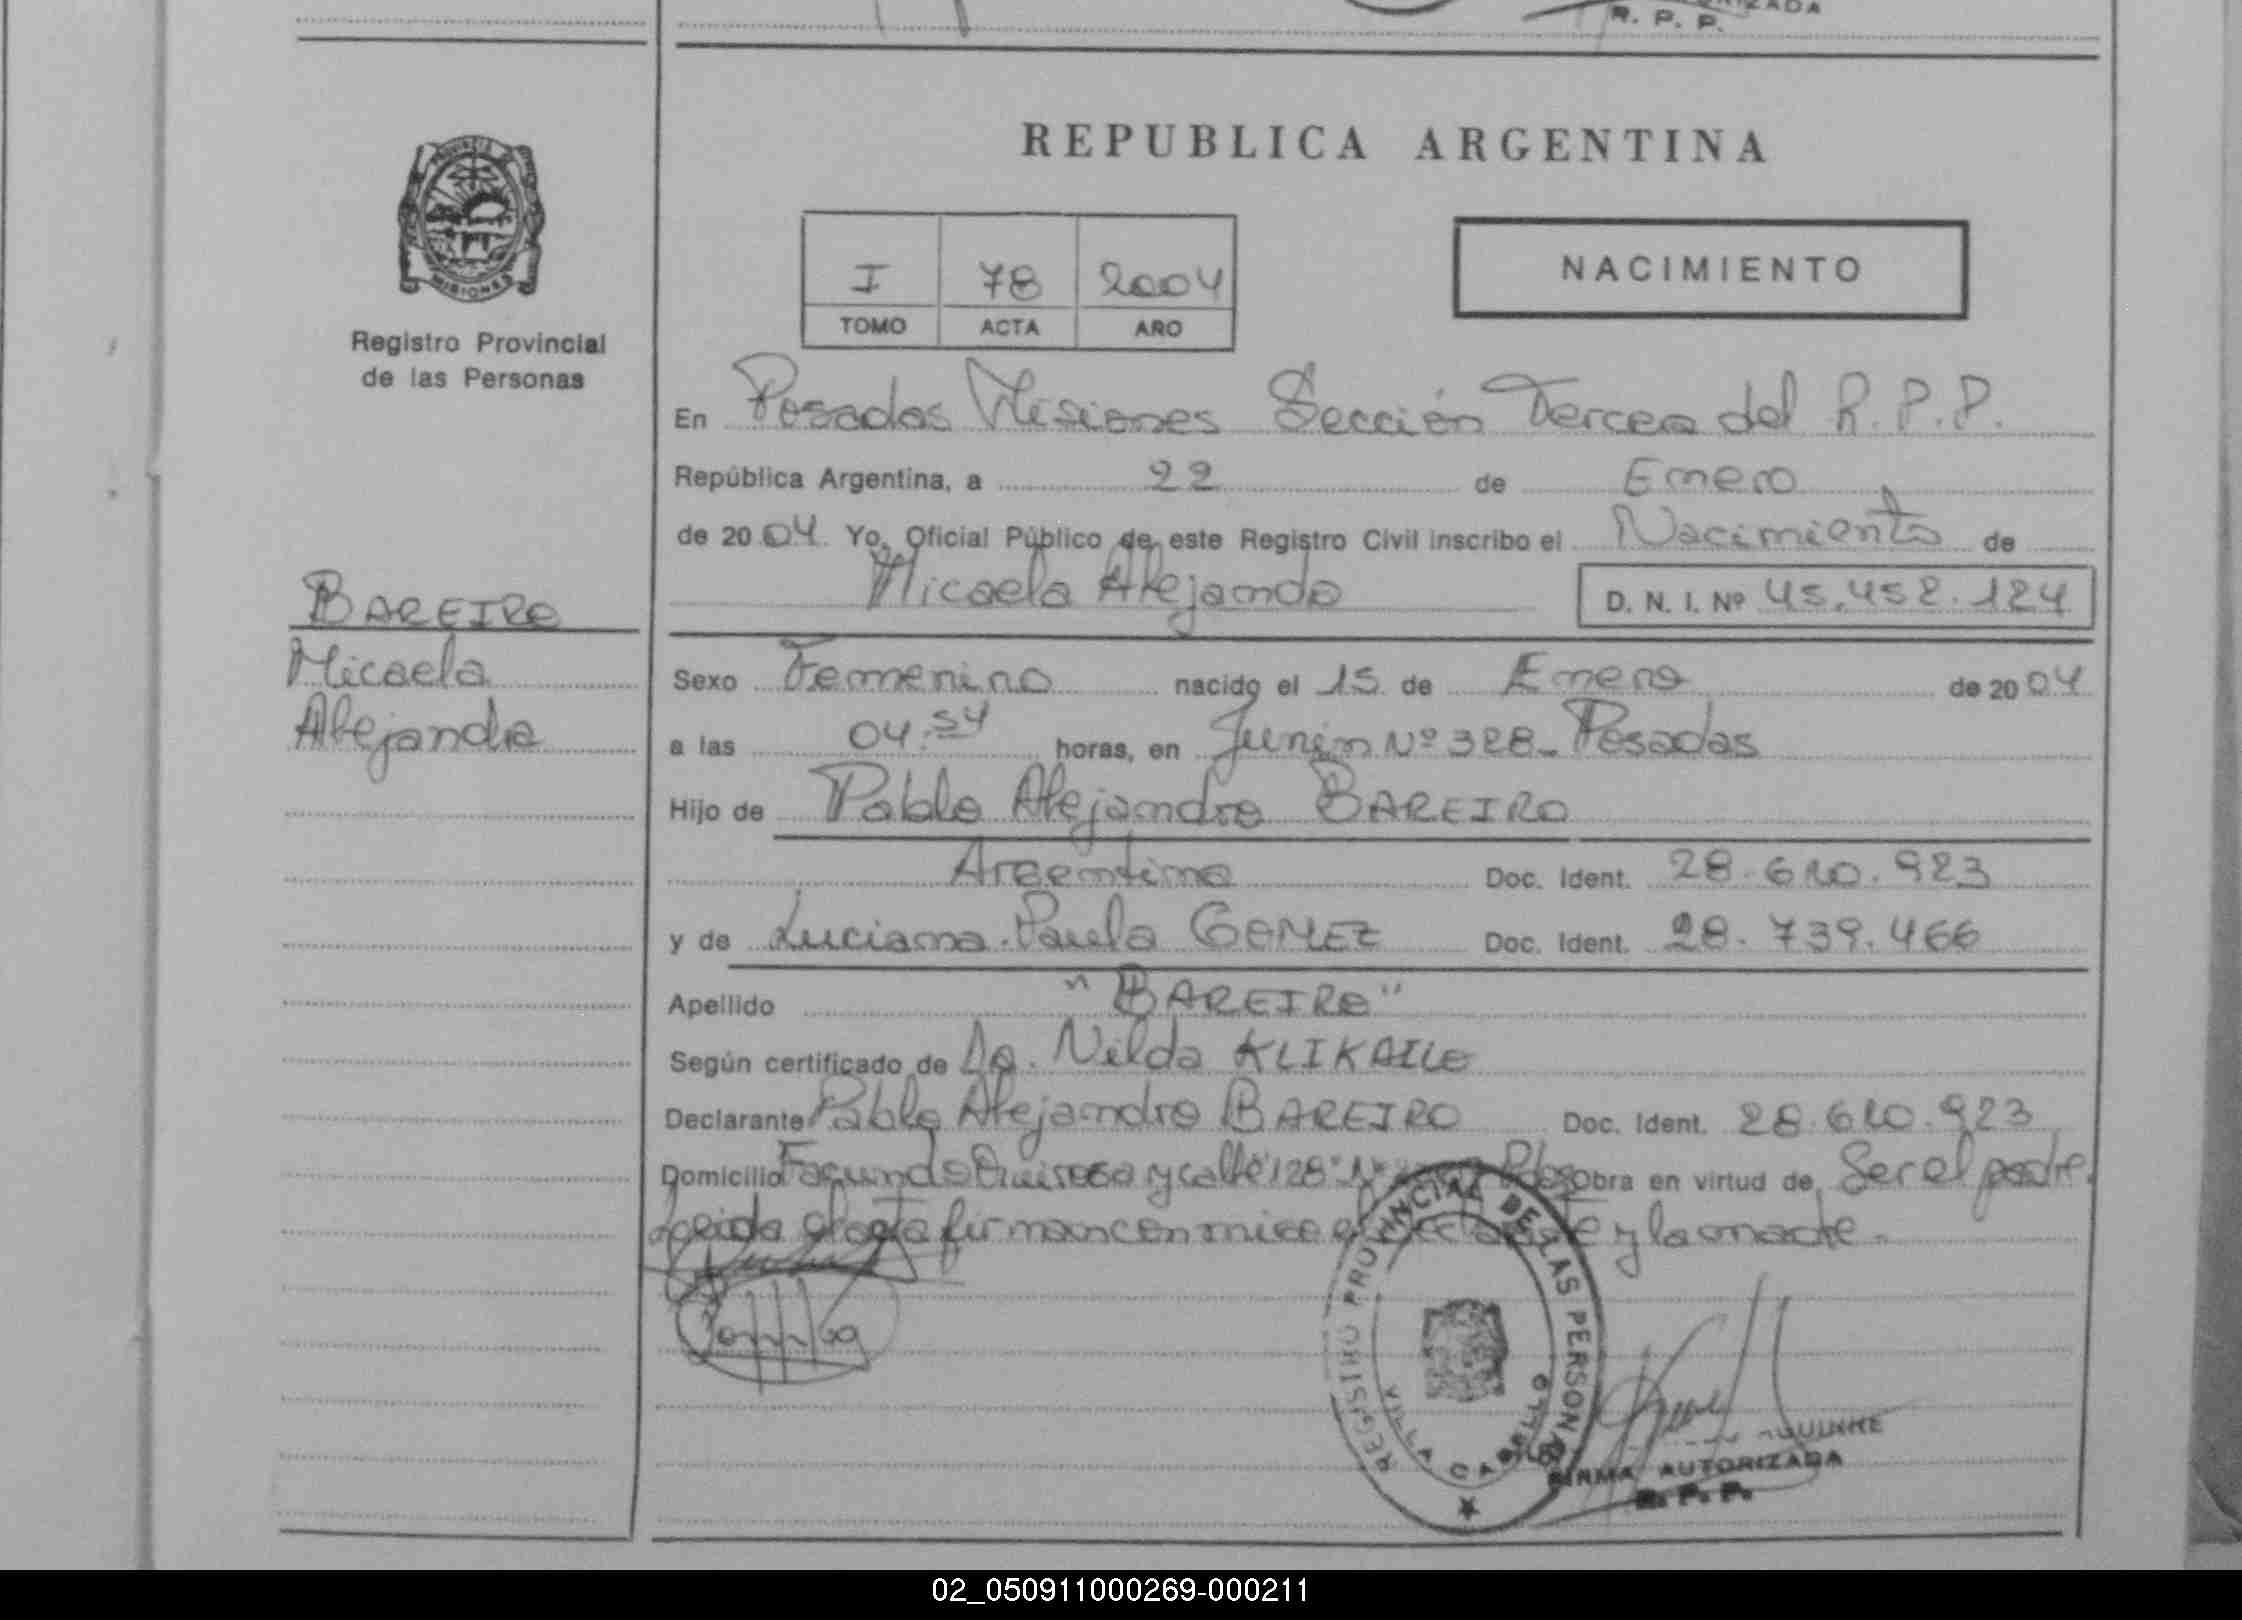 RIZADA
R. P. P.
PROVINCIA DE
MISIONES
Registro Provincial
de las Personas
REPUBLICA ARGENTINA
I 78 2004
TOMO ACTA AÑO
NACIMIENTO
En Posadas Misiones Sección Tercera del R.P.P.
República Argentina, a 22 de Enero
de 2004. Yo, Oficial Público de este Registro Civil inscribo el Nacimiento de
Micaela Alejandra D. N. I. Nº 45.452.124
BAREIRO
Micaela
Alejandra
Sexo Femenino nacido el 15 de Enero de 2004
a las 04:54 horas, en Junín Nº 328- Posadas
Hijo de Pablo Alejandro BAREIRO
Argentino Doc. Ident. 28.610.923
y de Luciana Paula GOMEZ Doc. Ident. 28.739.466
Apellido "BAREIRO"
Según certificado de Da. Nilda
Declarante Pablo Alejandro BAREIRO Doc. Ident. 28.610.923
Domicilio Facundo Quiroga y calle 128 Nº Pdas Obra en virtud de Ser el padre.
Leida el acta firman conmigo el declarante y la madre.
REGISTRO PROVINCIAL DE LAS PERSONAS
VILLA CABELLO
FIRMA AUTORIZADA
R. P. P.
02_050911000269-000211